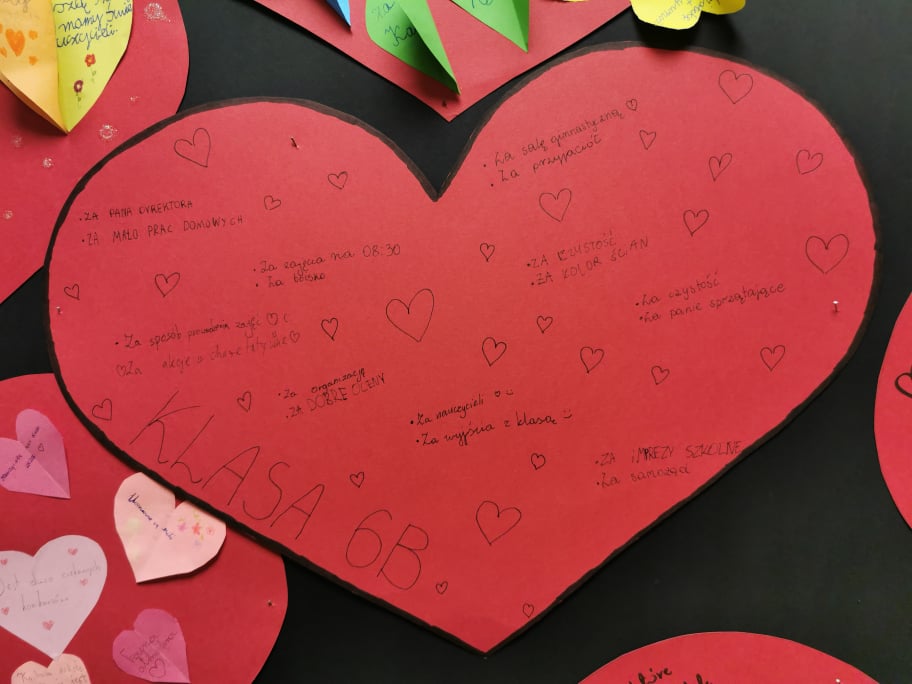 mamy
• ZA PANA DYREKTORA
• ZA MAŁO PRAC DOMOWYCH
• Za salę gimnastyczną
• Za przyjaciół
• Za zajęcia na 08:30
• Za boisko
• ZA CZYSTOŚĆ
• ZA KOLOR ŚCIAN
• Za czystość
• Za panie sprzątające
• Za sposób prowadzenia zajęć
Za akcje charytatywne
• Za organizację
• ZA DOBRE OCENY
• Za nauczycieli
• Za wyjścia z klasą :)
• ZA IMPREZY SZKOLNE
• Za samorząd
KLASA 6B
Jest dużo ciekawych
konkursów